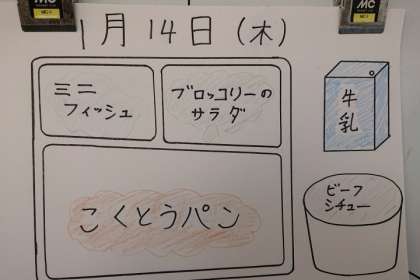 1月14日(木)
ミニ
フィッシュ
ブロッコリーの
サラダ
牛
乳
こくとうパン
ビーフ
シチュー
MC
MC